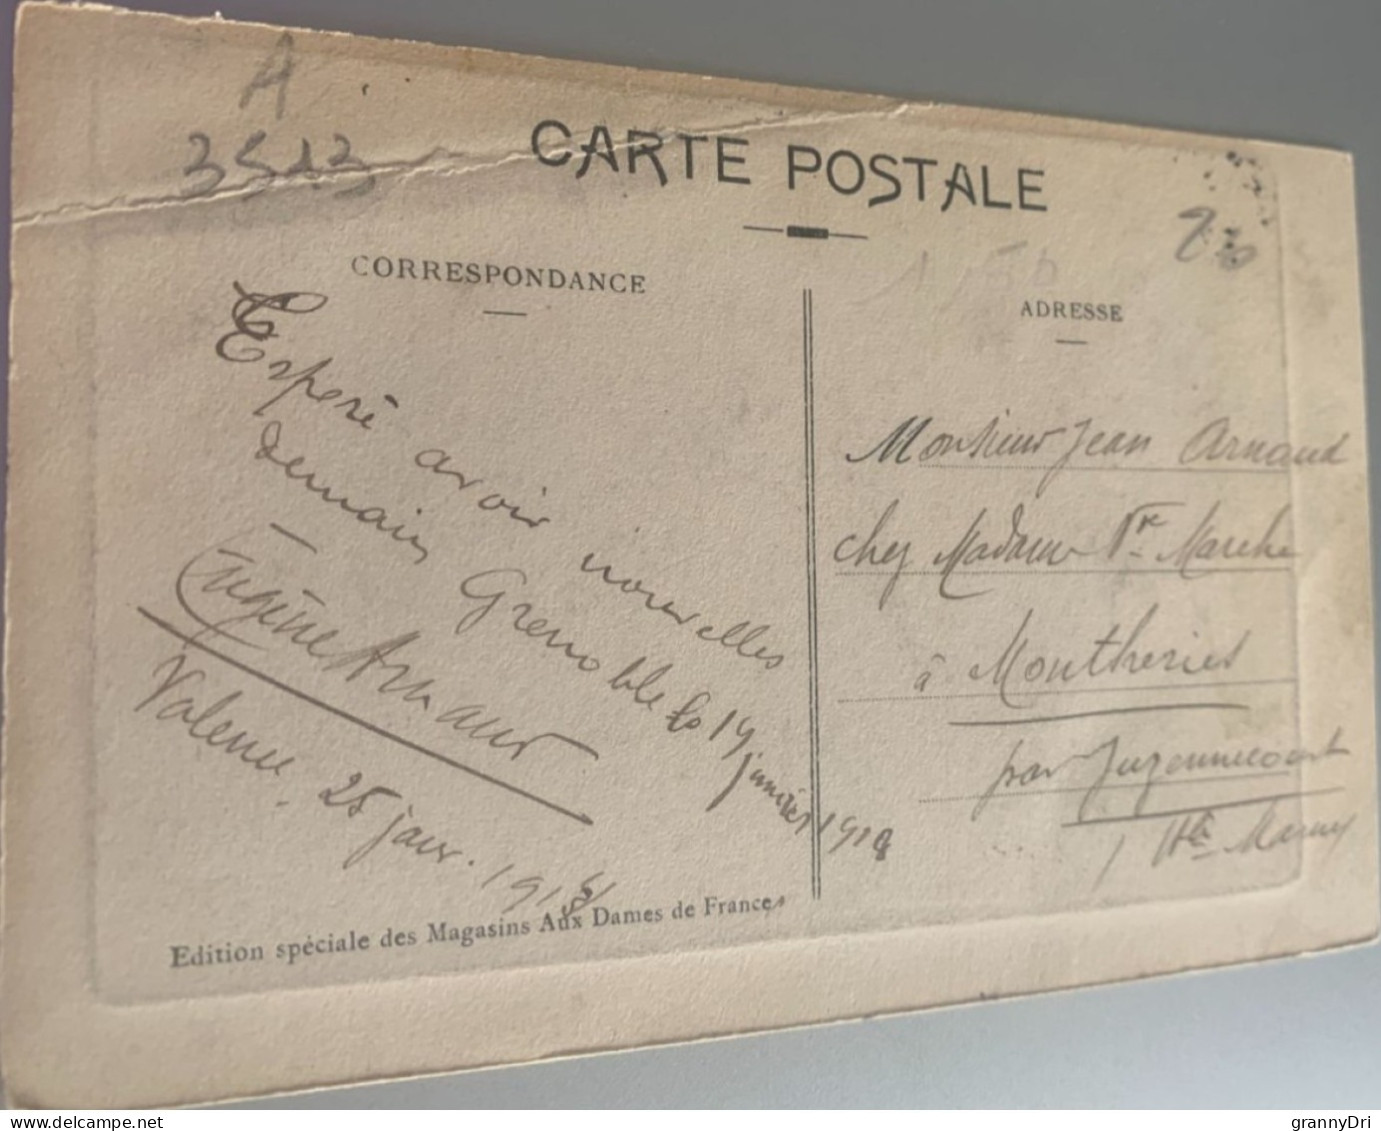 A
3513
CARTE POSTALE
CORRESPONDANCE
Esperè avoir nouvelles
demain Grenoble le 19 janvier 1918
Eugène Arnaud
Valence. 25 janv. 1918
Edition spéciale des Magasins Aux Dames de France
ADRESSE
Monsieur Jean Arnaud
chez Madame Vve Marche
à Montheries
par Juzennecourt
Hte Marne
delcampe.net
grannyDri